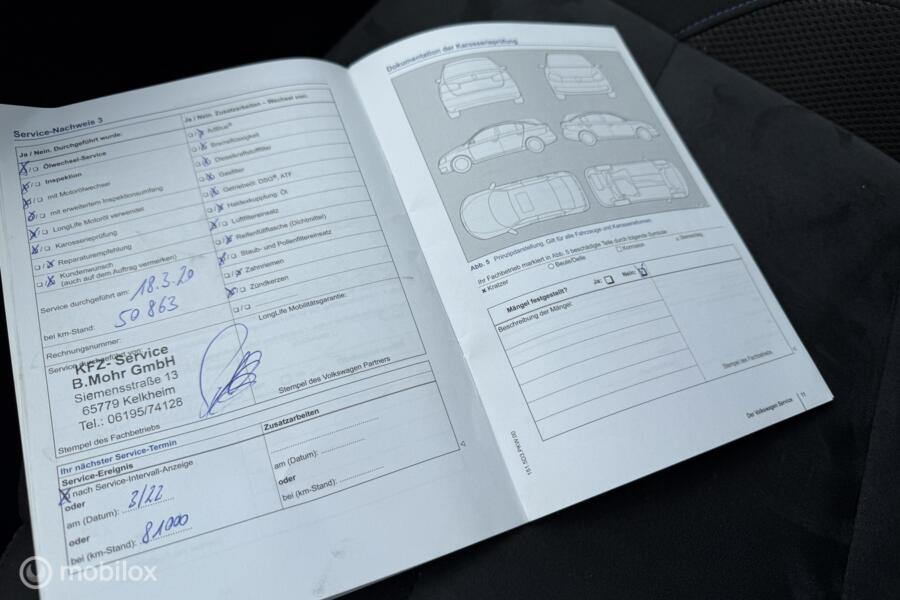 Service-Nachweis 3
Ja / Nein. Durchgeführt wurde:
Ölwechsel-Service
Inspektion
mit Motorölwechsel
mit erweitertem Inspektionsumfang
LongLife Motoröl verwendet
Karosserieprüfung
Reparaturempfehlung
Kundenwunsch
(auch auf dem Auftrag vermerken)
Service durchgeführt am: 18.3.20
bei km-Stand: 50 863
Rechnungsnummer:
Service durchgeführt von:
KFZ- Service
B.Mohr GmbH
Siemensstraße 13
65779 Kelkheim
Tel.: 06195/74128
Stempel des Fachbetriebs
Ja / Nein. Zusatzarbeiten – Wechsel von:
AdBlue®
Bremsflüssigkeit
Dieselkraftstofffilter
Gasfilter
Getriebeöl: DSG®, ATF
Haldexkupplung: Öl
Luftfiltereinsatz
Reifenfüllflasche (Dichtmittel)
Staub- und Pollenfiltereinsatz
Zahnriemen
Zündkerzen
LongLife Mobilitätsgarantie:
Stempel des Volkswagen Partners
Ihr nächster Service-Termin
Service-Ereignis
nach Service-Intervall-Anzeige
oder
am (Datum): 3/22
oder
bei (km-Stand): 81000
Zusatzarbeiten
am (Datum):
oder
bei (km-Stand):
Dokumentation der Karosserieprüfung
Abb. 5 Prinzipdarstellung. Gilt für alle Fahrzeuge und Karosserieformen.
Ihr Fachbetrieb markiert in Abb. 5 beschädigte Teile durch folgende Symbole:
× Kratzer
○ Beule/Delle
□ Korrosion
Mängel festgestellt?
Ja:
Nein:
Beschreibung der Mängel:
Stempel des Fachbetriebs
Der Volkswagen Service
11
mobilox